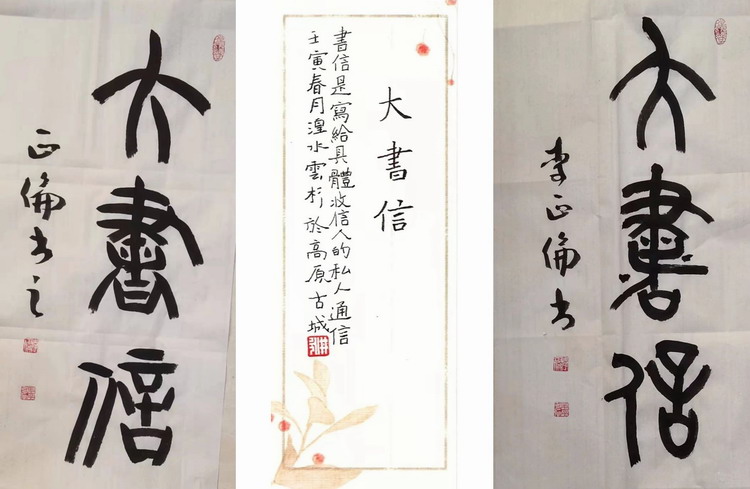 大書信
正倫书之
大書信
書信是寫給具體收信人的私人通信
壬寅春月湟水雲杉於高原古城
大書信
李正倫书